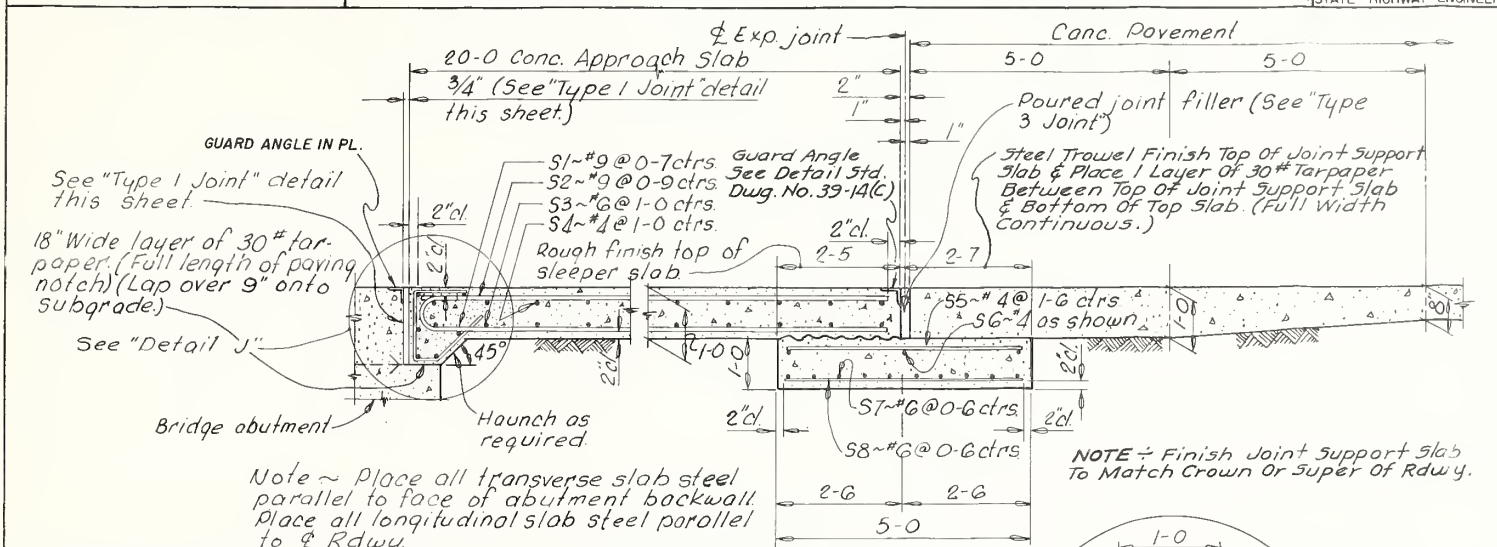 STATE HIGHWAY ENGINEER
℄ Exp. joint
Conc. Pavement
20-0 Conc. Approach Slab
5-0
5-0
3/4" (See "Type 1 Joint" detail
this sheet.)
2"
1"
1"
Poured joint filler (See "Type
3 Joint")
GUARD ANGLE IN PL.
See "Type 1 Joint" detail
this sheet.
2"cl.
2"cl.
S1~#9 @ 0-7 ctrs.
S2~#9 @ 0-9 ctrs.
S3~#6 @ 1-0 ctrs.
S4~#4 @ 1-0 ctrs.
Guard Angle
See Detail Std.
Dwg. No. 39-14(C)
Steel Trowel Finish Top Of Joint Support
Slab & Place 1 Layer Of 30# Tarpaper
Between Top Of Joint Support Slab
& Bottom Of Top Slab. (Full Width
Continuous.)
18" Wide layer of 30# tar-
paper. (Full length of paving
notch) (Lap over 9" onto
subgrade.)
Rough finish top of
sleeper slab
2"cl.
2-5
2-7
See "Detail J"
S5~#4 @ 1-6 ctrs
S6~#4 as shown
45°
2"cl.
1-0
1-0
1-0
8"
2"cl.
Bridge abutment
Haunch as
required.
2"cl.
S7~#6 @ 0-6 ctrs.
2"cl.
S8~#6 @ 0-6 ctrs
NOTE ÷ Finish Joint Support Slab
To Match Crown Or Super Of Rdwy.
Note ~ Place all transverse slab steel
parallel to face of abutment backwall.
Place all longitudinal slab steel parallel
to ℄ Rdwy.
2-6
2-6
5-0
1-0